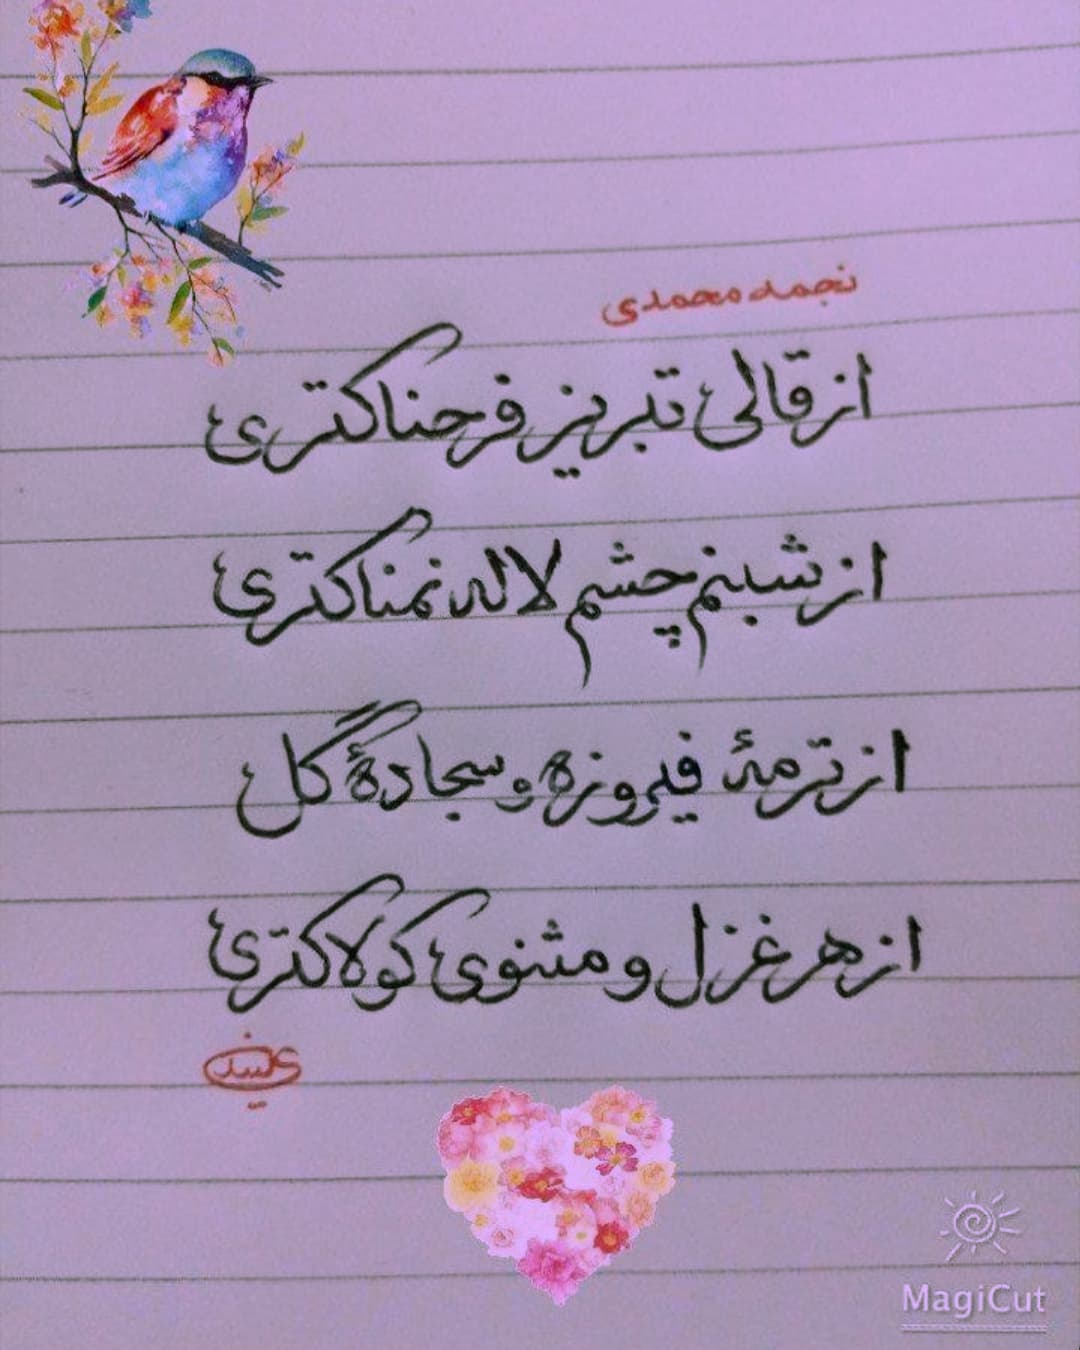 نجمه محمدی
از قالی تبریز فرحناکتری
از شبنم چشم لاله نمناکتری
از ترمهٔ فیروزه و سجادهٔ گل
از هر غزل و مثنوی کولاکتری
MagiCut